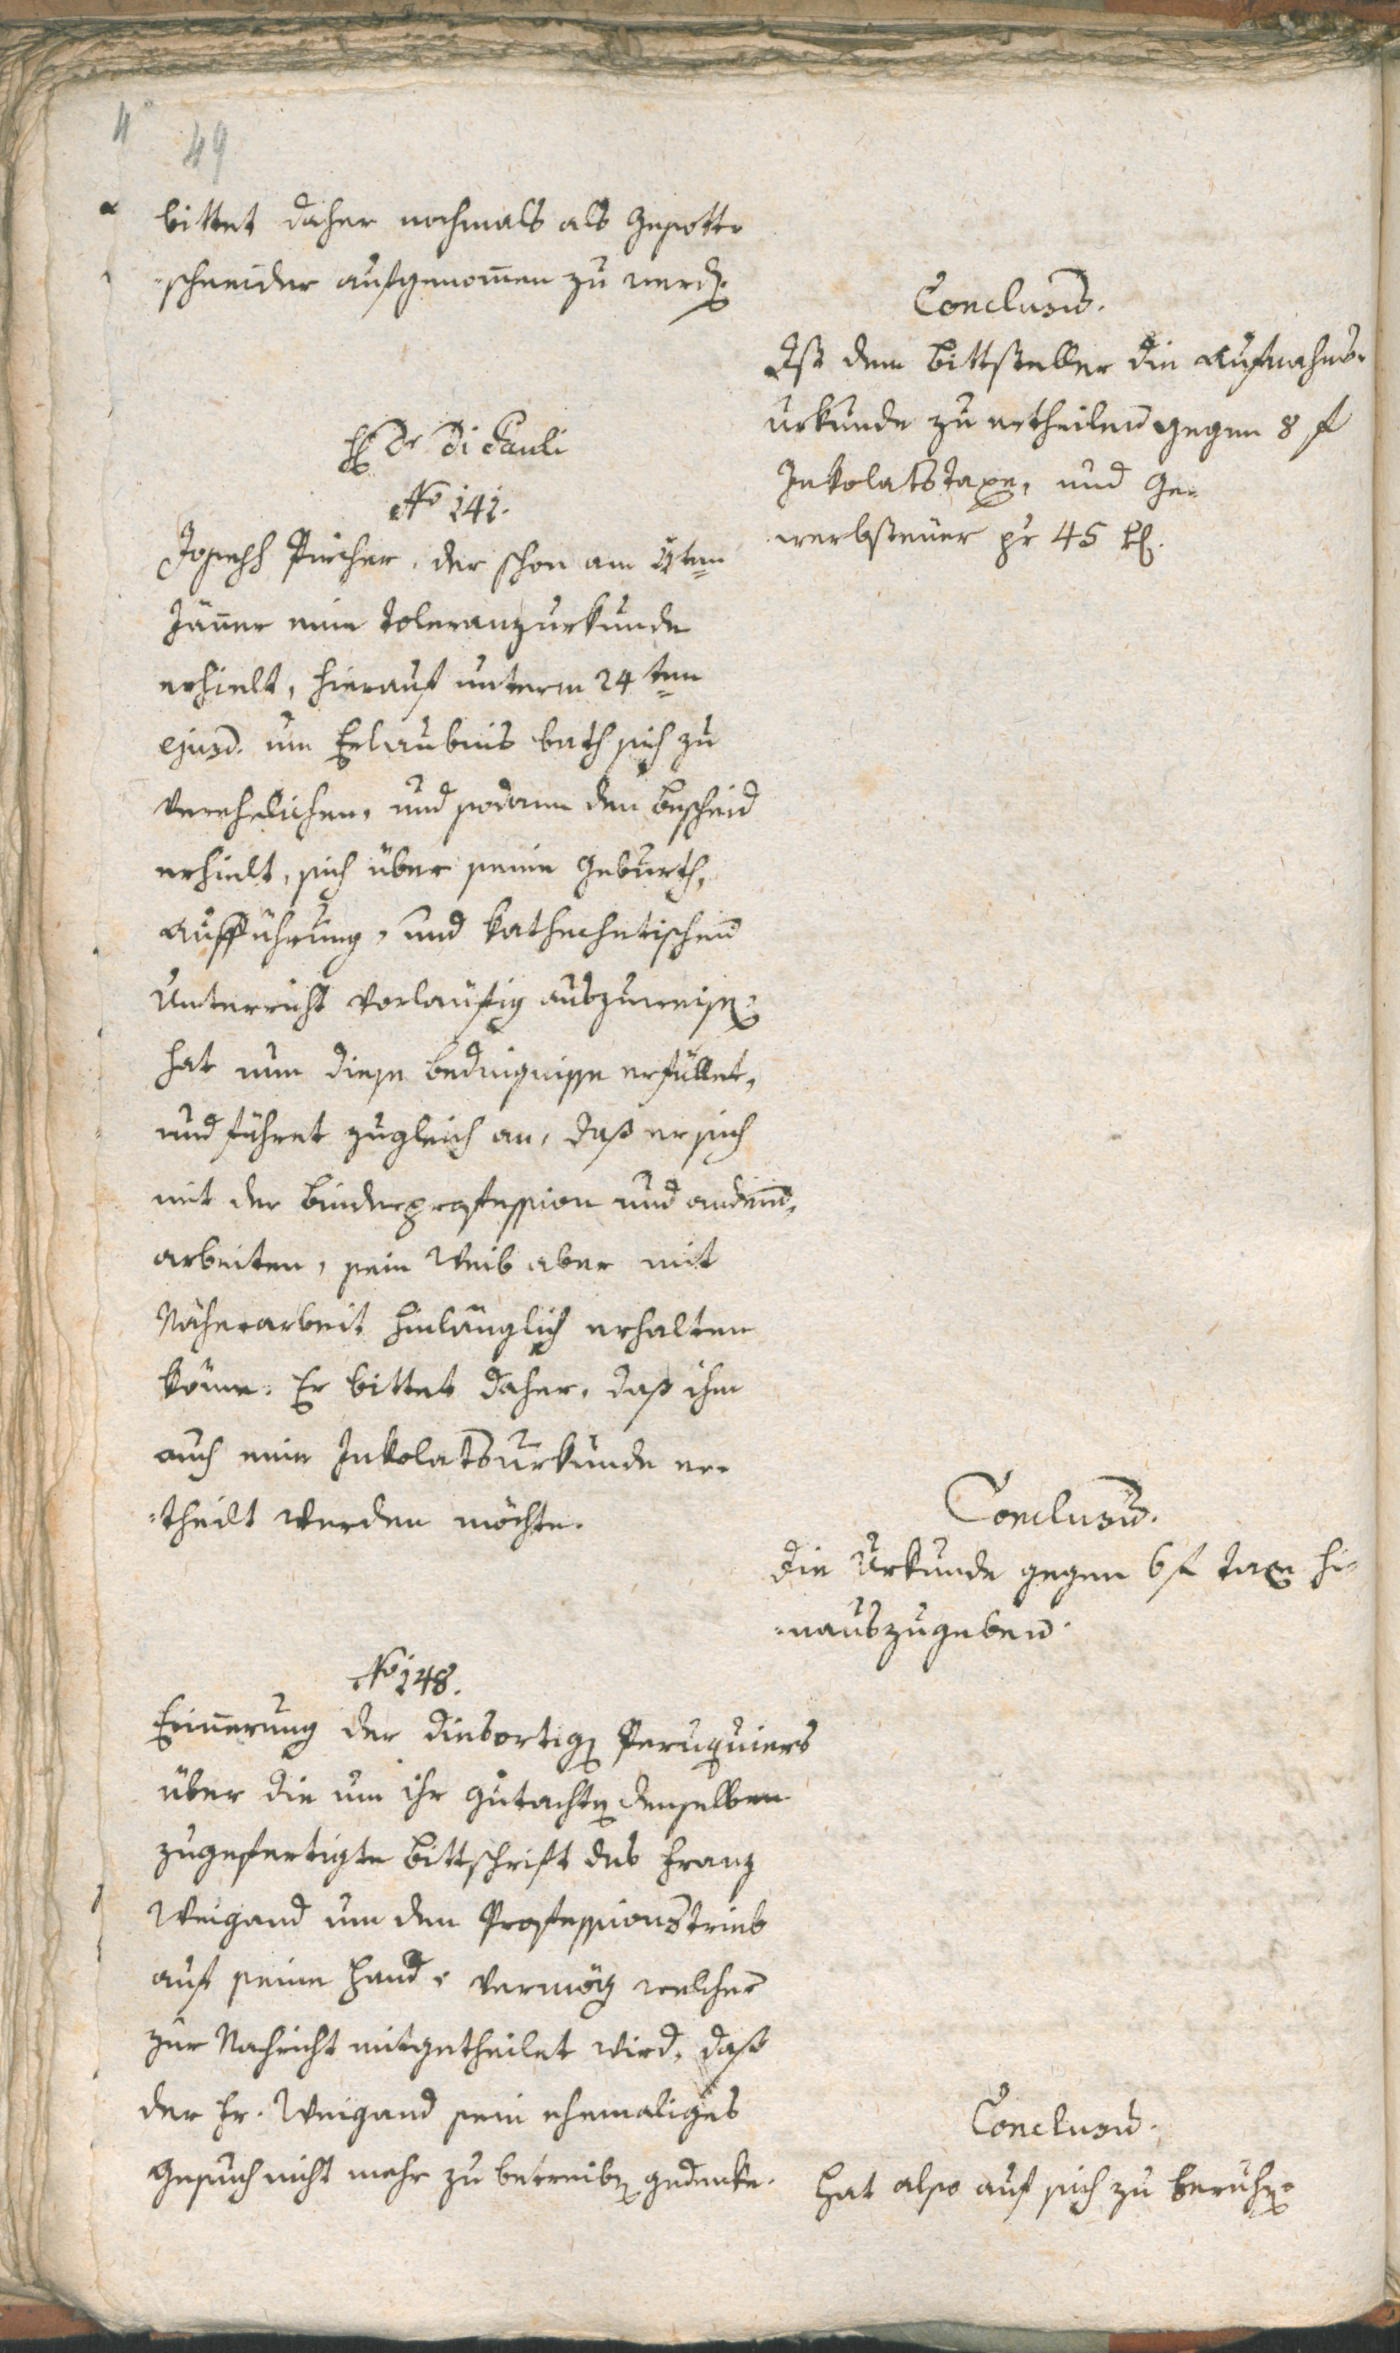 49
bittet daher nochmals als Gepotts
schneider aufgenommen zu werden.
Conclusum.
Ist dem Bittsteller die Aufnahms-
urkunde zu ertheilen gegen 8 f
Inkolatstaxe, und Ge-
werbsteuer pr 45 kr.
H. Dr Di Pauli
No 141.
Joseph Pircher, der schon am ten
Jänner eine Toleranzurkunde
erhielt, hierauf unterm 24ten
ejusd. um Erlaubnis bath sich zu
verehelichen, und sodann den Bescheid
erhielt, sich über seine Geburth,
Aufführung, und kathechetischen
Unterricht vorläufig auszuweisen:
hat nun diese Bedingnisse erfüllet,
und führet zugleich an, daß er sich
mit der Binderprofession und andern
arbeiten, sein Weib aber mit
Näherarbeit hinlänglich erhalten
könne. Er bittet daher, daß ihm
auch eine Inkolatsurkunde er-
theilt werden möchte.
Conclusum.
Die Urkunde gegen 6 f Taxe hi-
nauszugeben.
No 148.
Erinnerung der diesortigen Peruquiers
über die um ihr Gutachten denselben
zugefertigte Bittschrift des Franz
Weigand um den Professionstrieb
auf seine Hand, vermög welcher
zur Nachricht mitgetheilet wird, daß
der Fr. Weigand sein ehemaliges
Gesuch nicht mehr zu betreiben gedenke.
Conclusum.
Hat also auf sich zu beruhen.